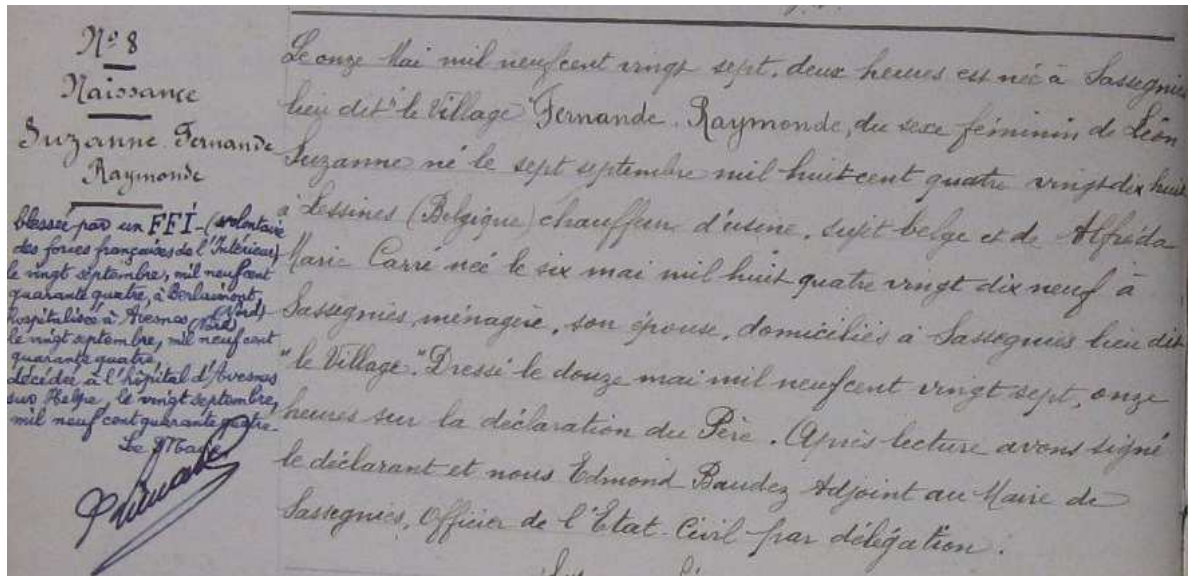 Nº 8
Naissance
Suzanne Fernande
Raymonde
blessée par un FFI - (volontaire
des forces françaises de l'Intérieur)
le vingt septembre, mil neuf cent
quarante quatre, à Berlaimont, (Nord)
hospitalisée à Avesnes, (Nord)
le vingt septembre, mil neuf cent
quarante quatre,
décédée à l'hôpital d'Avesnes
sur Helpe, le vingt septembre,
mil neuf cent quarante quatre.
Le Maire
Le onze Mai mil neufcent vingt sept, deux heures est née à Sassegnies
lieu dit "le Village" Fernande Raymonde, du sexe féminin de Léon
Suzanne né le sept septembre mil huit cent quatre vingt dix huit
à Lessines (Belgique) chauffeur d'usine, sujet belge et de Alfréda
Marie Carré née le six mai mil huit quatre vingt dix neuf à
Sassegnies, ménagère, son épouse, domiciliés à Sassegnies lieu dit
"le Village". Dressé le douze mai mil neufcent vingt sept, onze
heures sur la déclaration du Père. Après lecture avons signé
le déclarant et nous Edmond Baudez Adjoint au Maire de
Sassegnies, Officier de l'Etat-Civil par délégation.